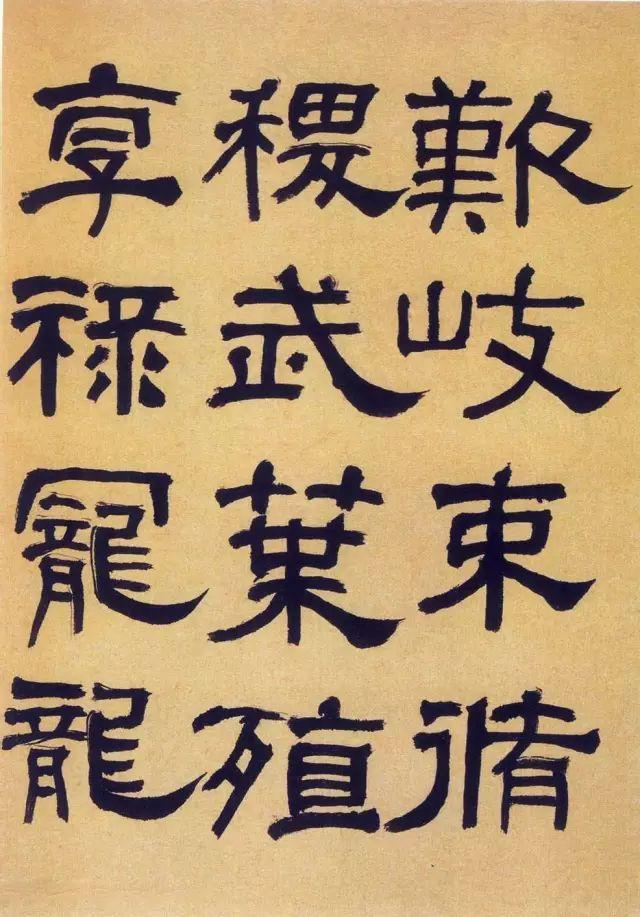 歎岐束脩
稷武葉殖
享祿寵龍